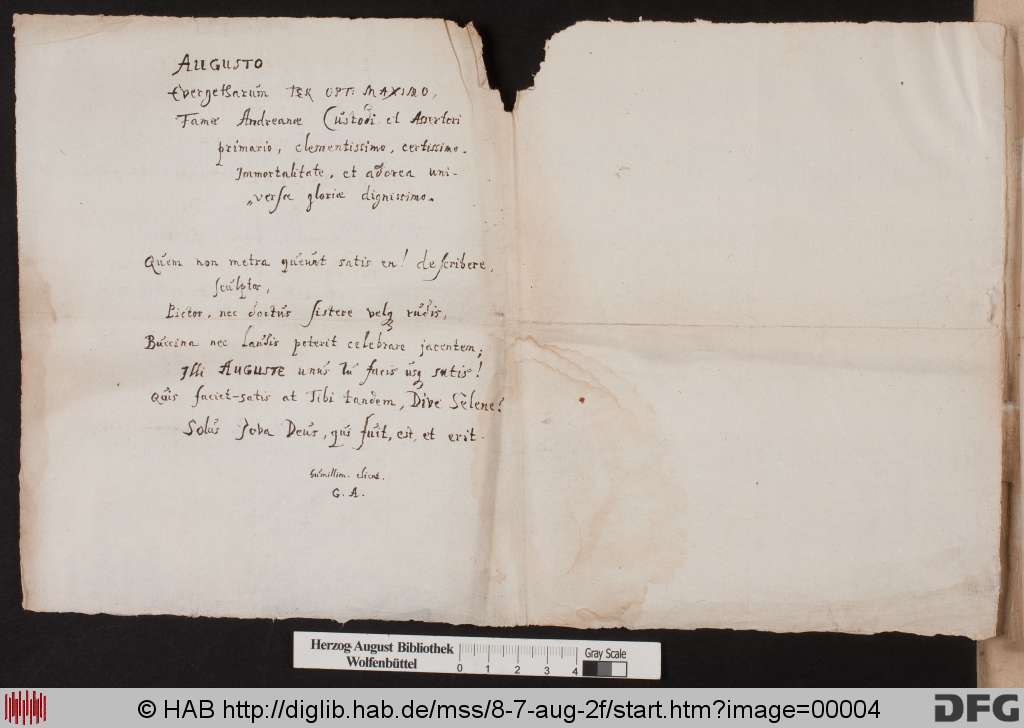 AUGUSTO
Evergetarum TER OPT: MAXIMO,
Famæ Andreanæ Custodi et Assertori
primario, clementissimo, certissimo.
Immortalitate, et adorea uni-
versæ gloriæ dignissimo.
Quem non metra queunt satis en! describere,
sculptor,
Pictor, nec doctus sistere velq rudis,
Buccina nec laudis poterit celebrare jacentem;
Illi AUGUSTE unus tu facis usq satis!
Quis faciet-satis at Tibi tandem, Dive Selene?
Solus Jova Deus, qui fuit, est, et erit.
humillim. cliens
G. A.
Herzog August Bibliothek
Wolfenbüttel
0 1 2 3 4
Gray Scale
© HAB http://diglib.hab.de/mss/8-7-aug-2f/start.htm?image=00004
DFG